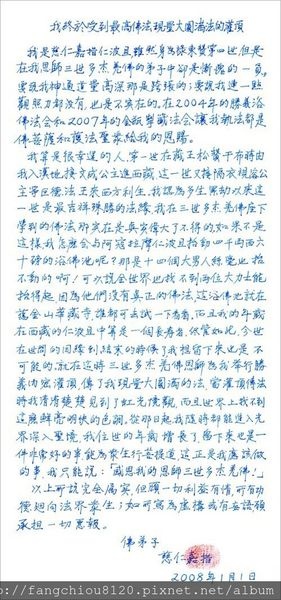 我終於受到最高佛法現量大圓滿法的灌頂
我是慈仁嘉措仁波且雖然身為綠東贊第四世但是
在我恩師三世多杰羌佛的弟子中卻是漸愧的一員。
要說我神通道量高深那是誇張的；要說我連一點
觀照力都沒有，也是不實在的。在2004年的勝義浴
佛法會和2007年的金瓶掣籤法會讓我親法都是
佛菩薩和護法聖眾給我的恩賜。
我算是很幸運的人，第一世在藏王松贊干布時由
我入漢地接文成公主進西藏這一世又接隔衣視居公
主寧臣德法王來西方利生。我認為多生無劫以來這
一世是最吉祥殊勝的法緣，我在三世多杰羌佛座下
學到的佛法那實在是真實得大了不得的如果不是
這樣我怎麼會與阿寇拉摩仁波且抬動四千兩百六
十磅的浴佛池呢？那是十四個大男人絲毫也抬
不動的啊！可以說全世界也找不到兩位大力士能
抬得起因為他們沒有真正的佛法這浴佛池就在
舊金山華藏寺誰都可去試一下看看，而且我的年歲
在西藏的仁波且中算是一個長壽者依實如此，今世
在世間的因緣到結束的時候了我想留下來也是不
可能的，就在這時三世多杰羌佛恩師為我舉行勝
義內密灌頂傳了我現量大圓滿的法，當灌頂傳法
時我清清楚楚見到了虹光境觀，而且世界上找不到
這麼鮮亮明快的色調，從那日起我隨時都能進入光
界深入聖境，我住世的年齡增長了，留下來也是一
件非常好的事能為眾生行菩提道這正是我應該做
的事，我只能說：「感恩我的恩師三世多杰羌佛！」
以上所說完全屬實，但願一切利益有情，所有功
德迴向法界眾生；如所寫為虛構我有妄語願
承担一切惡報。
佛弟子
慈仁嘉措
2008年1月1日
http://fangchiou8120.pixnet.net/album